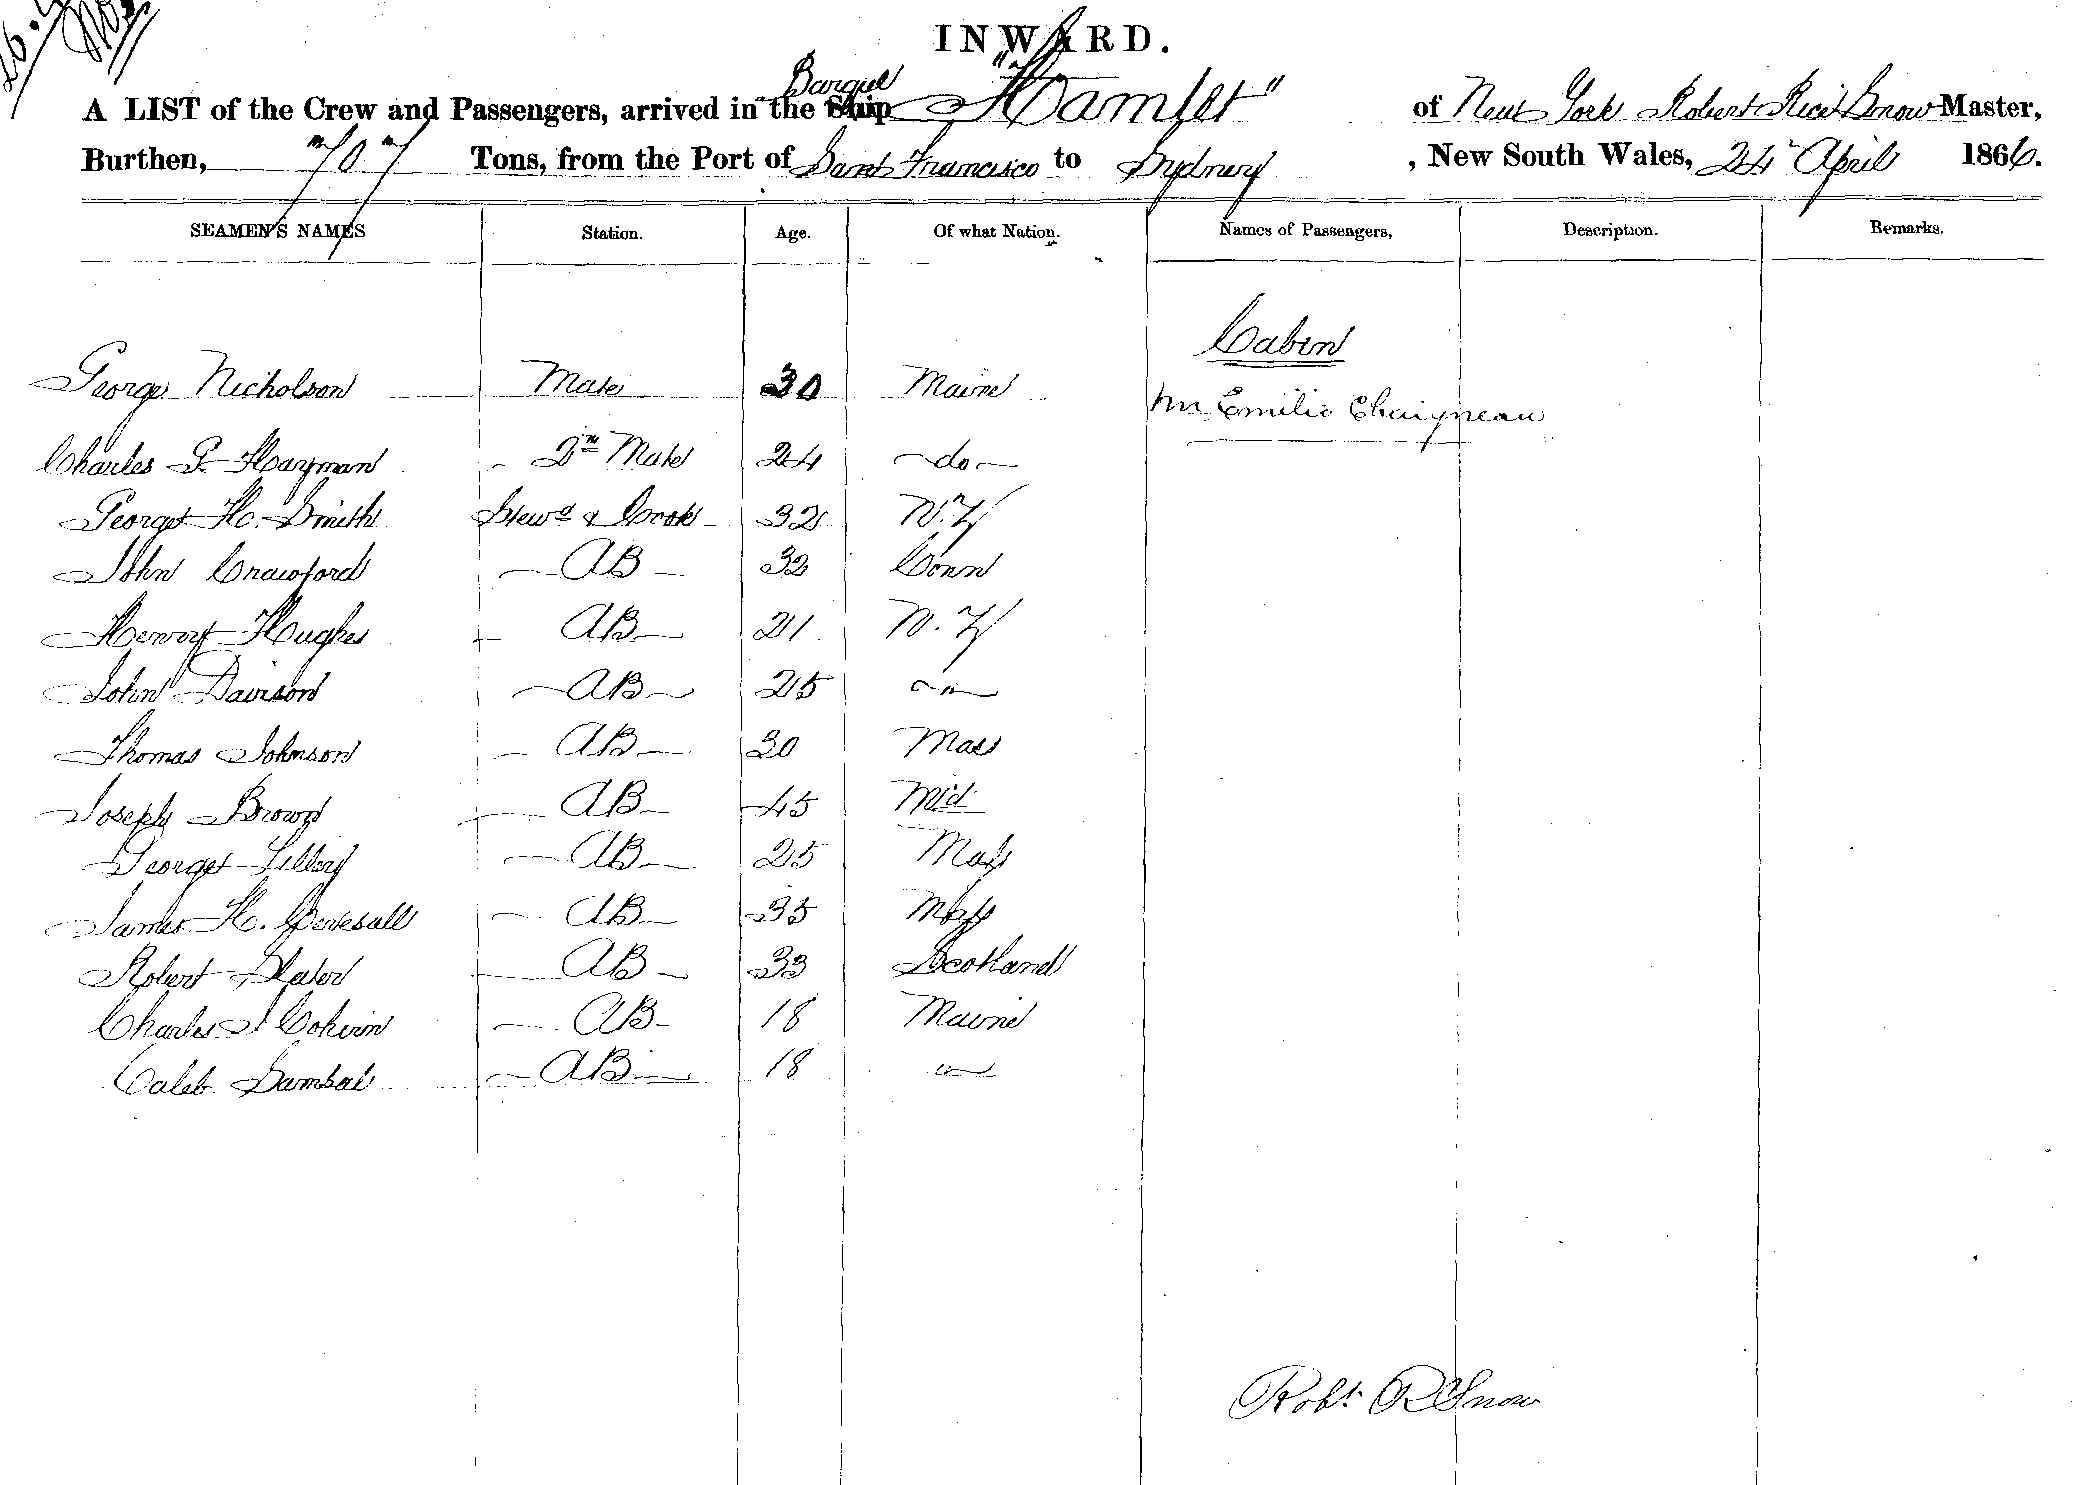 INWARD.
A LIST of the Crew and Passengers, arrived in the Ship Barque "Hamlet" of New York Robert Rice Snow Master,
Burthen, 707 Tons, from the Port of San Francisco to Sydney, New South Wales, 24 April 1866.
SEAMEN'S NAMES Station. Age. Of what Nation. Names of Passengers, Description. Remarks.
Cabin
George Nicholson Mate 30 Maine Mr Emilie Chaigneau
Charles G. Hayman 2nd Mate 24 do
George H. Smith Stewd & Cook 32 N.Y
John Crawford AB 32 Conn
Henry Hughes AB 21 N.Y
John Davison AB 25 "
Thomas Johnson AB 30 Mass
Joseph Brown AB 45 Md
George Lillery AB 25 Mass
James H. AB 35 Mass
Robert Slater AB 33 Scotland
Charles Colvin AB 18 Maine
Caleb AB 18 "
Robt. R Snow